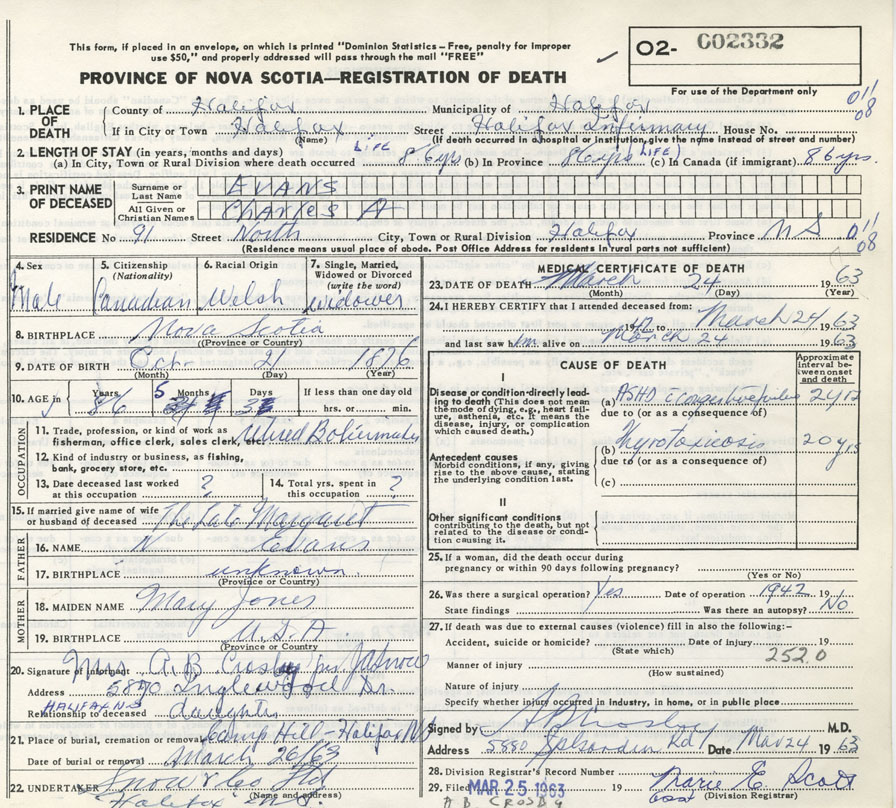 This form, if placed in an envelope, on which is printed "Dominion Statistics – Free, penalty for Improper
use $50," and properly addressed will pass through the mail "FREE"
PROVINCE OF NOVA SCOTIA—REGISTRATION OF DEATH
02- C02332
For use of the Department only
011
08
1. PLACE OF DEATH
County of Halifax Municipality of Halifax
If in City or Town Halifax Street Halifax Infirmary House No.
(Name) (If death occurred in a hospital or institution, give the name instead of street and number)
2. LENGTH OF STAY (in years, months and days)
(a) In City, Town or Rural Division where death occurred LIFE 86 yrs (b) In Province 86 yrs (LIFE) (c) In Canada (if immigrant) 86 yrs.
3. PRINT NAME OF DECEASED
Surname or Last Name EVANS
All Given or Christian Names Charles A
RESIDENCE No 91 Street North City, Town or Rural Division Halifax Province N S 011
08
(Residence means usual place of abode. Post Office Address for residents in rural parts not sufficient)
4. Sex Male
5. Citizenship (Nationality) Canadian
6. Racial Origin Welsh
7. Single, Married, Widowed or Divorced (write the word) widower
8. BIRTHPLACE Nova Scotia
(Province or Country)
9. DATE OF BIRTH Oct. 21 1876
(Month) (Day) (Year)
10. AGE in Years 86 Months 5 Days 3 If less than one day old
hrs. or min.
OCCUPATION
11. Trade, profession, or kind of work as
fisherman, office clerk, sales clerk, etc.
12. Kind of industry or business, as fishing,
bank, grocery store, etc.
13. Date deceased last worked
at this occupation ?
14. Total yrs. spent in
this occupation ?
15. If married give name of wife
or husband of deceased The Late Margaret
FATHER
16. NAME N Evans
17. BIRTHPLACE unknown
(Province or Country)
MOTHER
18. MAIDEN NAME Mary Jones
19. BIRTHPLACE U.S.A.
(Province or Country)
20. Signature of informant Mrs A.B Crosby per
Address 5890 Inglewood Dr.
HALIFAX N.S.
Relationship to deceased daughter
21. Place of burial, cremation or removal Camp Hill - Halifax NS
Date of burial or removal March 26/63
22. UNDERTAKER Snow & Co Ltd
(Name and address)
Halifax N.S.
MEDICAL CERTIFICATE OF DEATH
23. DATE OF DEATH March 24 1963
(Month) (Day) (Year)
24. I HEREBY CERTIFY that I attended deceased from:
19 to March 24 1963
and last saw him alive on March 24 1963
CAUSE OF DEATH
Approximate interval between onset and death
I
Disease or condition directly leading to death (This does not mean the mode of dying, e.g., heart failure, asthenia, etc. It means the disease, injury, or complication which caused death.)
(a) ASHD
due to (or as a consequence of)
Antecedent causes
Morbid conditions, if any, giving rise to the above cause, stating the underlying condition last.
(b) Thyrotoxicosis 20 yrs
due to (or as a consequence of)
(c)
II
Other significant conditions
contributing to the death, but not related to the disease or condition causing it.
25. If a woman, did the death occur during
pregnancy or within 90 days following pregnancy?
(Yes or No)
26. Was there a surgical operation? Yes Date of operation 1942 19
State findings Was there an autopsy? No
27. If death was due to external causes (violence) fill in also the following:-
Accident, suicide or homicide? Date of injury 19
(State which) 252.0
Manner of injury
(How sustained)
Nature of injury
Specify whether injury occurred in industry, in home, or in public place.
Signed by A B Crosby M.D.
Address Rd Date Mar 24 1963
28. Division Registrar's Record Number
29. Filed MAR 25 1963 19 Marie E. Scott
asst (Division Registrar)
A.B. CROSBY